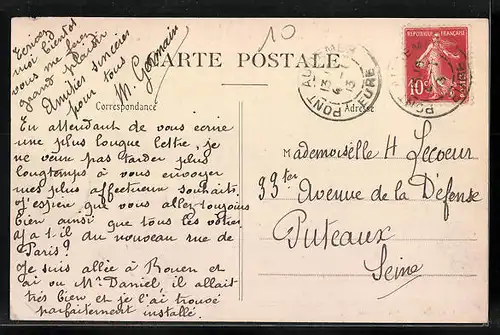 10
Ecrivez
moi bientôt
vous me ferez
grand plaisir
Amitiés sincères
pour tous
M. Germain
CARTE POSTALE
Correspondance
Adresse
REPUBLIQUE FRANÇAISE
10
PONT AUDEMER
EURE
13
En attendant de vous ecrire
une plus longue lettre, je
ne veux pas tarder plus
longtemps à vous envoyer
mes plus affectueux souhaits.
J'espère que vous allez toujours
bien ainsi que tous les vôtres
Y a t il du nouveau rue de
Paris?
Je suis allée à Rouen et
ai vu Mr Daniel, il allait
très bien et je l'ai trouvé
parfaitement installé.
Mademoiselle H Lecoeur
33ter Avenue de la Défense
Puteaux
Seine